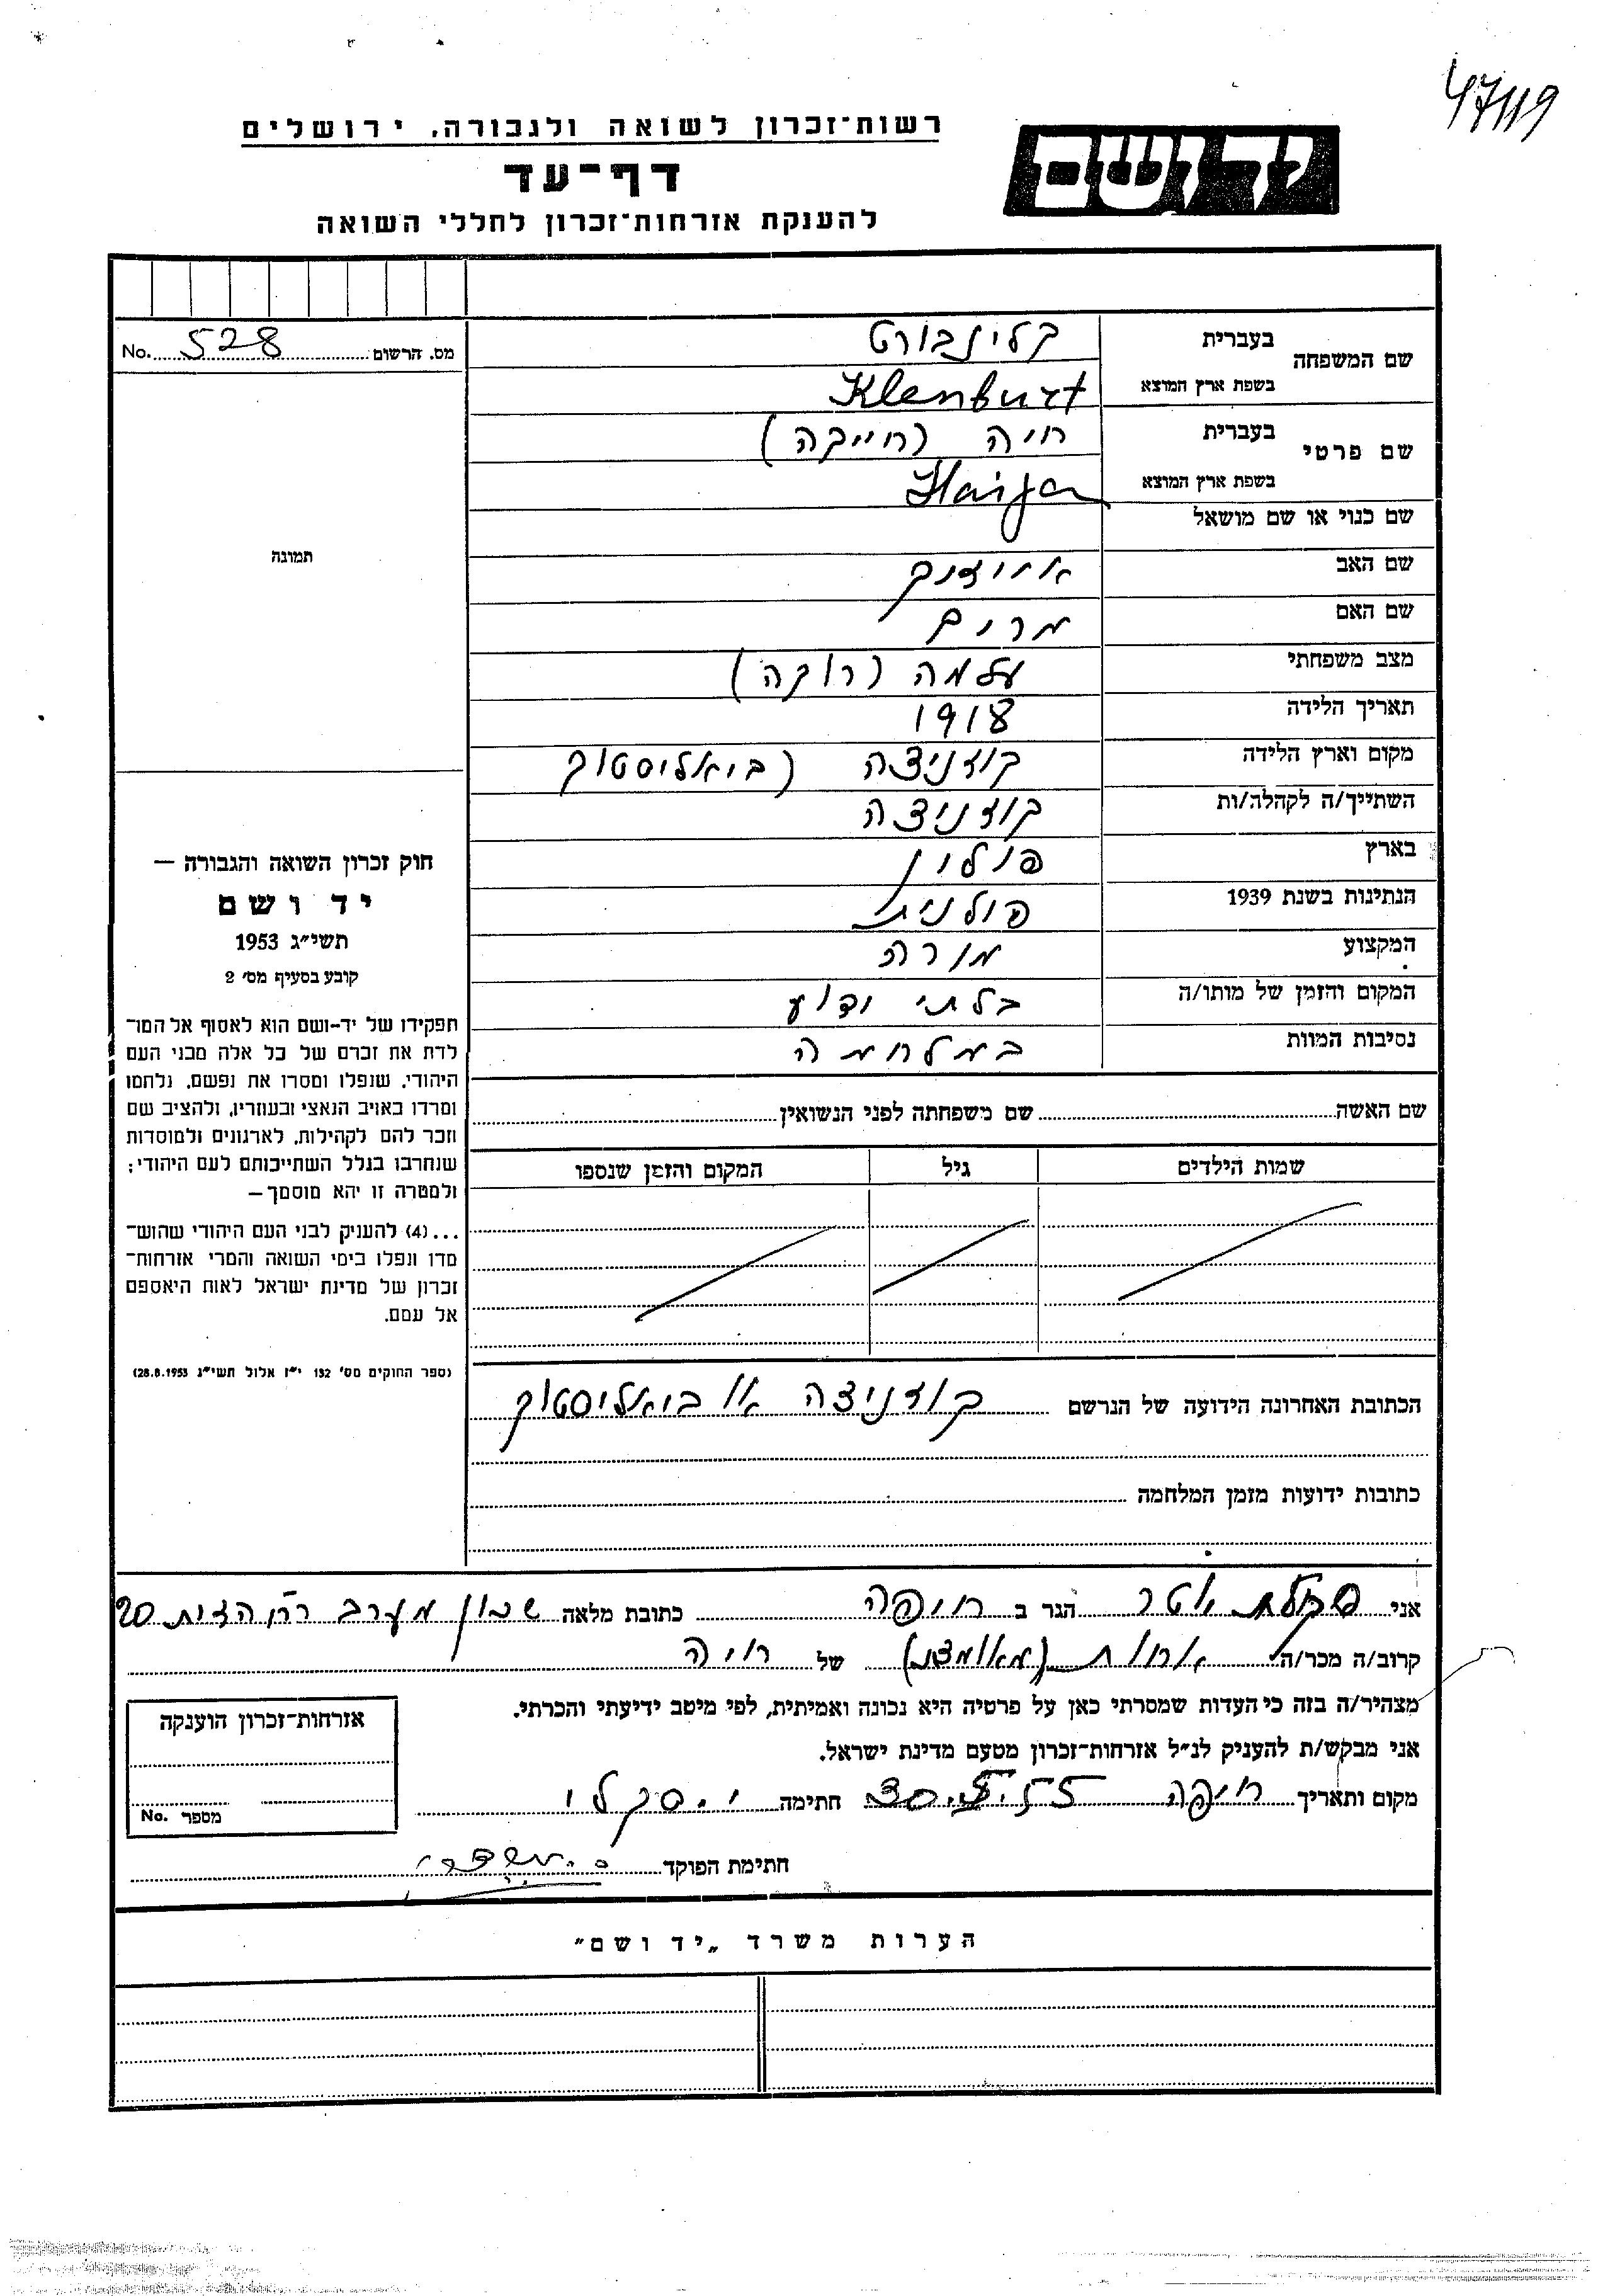 47119
רשות־זכרון לשואה ולגבורה, ירושלים
דף־עד
להענקת אזרחות־זכרון לחללי השואה
יד ושם
מס. הרשום 528 No.
שם המשפחה בעברית קלינבורט
בשפת ארץ המוצא Klenburt
שם פרטי בעברית חיה (חייקה)
בשפת ארץ המוצא Haija
שם כנוי או שם מושאל
שם האב
שם האם מרים
מצב משפחתי עלמה (רוקה)
תאריך הלידה 1918
מקום וארץ הלידה קוזניצה (ביאליסטוק
השתייך/ה לקהלה/ות קוזניצה
בארץ פולין
הנתינות בשנת 1939 פולנית
המקצוע מורה
המקום והזמן של מותו/ה בלתי ידוע
נסיבות המוות במלחמה
תמונה
חוק זכרון השואה והגבורה —
יד ושם
תשי״ג 1953
קובע בסעיף מס׳ 2
תפקידו של יד-ושם הוא לאסוף אל המו־
לדת את זכרם של כל אלה מבני העם
היהודי, שנפלו ומסרו את נפשם, נלחמו
ומרדו באויב הנאצי ובעוזריו, ולהציב שם
וזכר להם לקהילות, לארגונים ולמוסדות
שנחרבו בגלל השתייכותם לעם היהודי;
ולמטרה זו יהא מוסמך—
...(4) להעניק לבני העם היהודי שהוש־
מדו ונפלו בימי השואה והמרי אזרחות־
זכרון של מדינת ישראל לאות היאספם
אל עמם.
(ספר החוקים מס׳ 132 י״ז אלול תשי״ג 28.8.1953)
שם האשה שם משפחתה לפני הנשואין
שמות הילדים גיל המקום והזמן שנספו
הכתובת האחרונה הידועה של הנרשם קוזניצה או ביאליסטוק
כתובות ידועות מזמן המלחמה
אני אסתר הגר ב חיפה כתובת מלאה שכון מערב 20
קרוב/ה מכר/ה אחות (מאומצת) של חיה
מצהיר/ה בזה כי העדות שמסרתי כאן על פרטיה היא נכונה ואמיתית, לפי מיטב ידיעתי והכרתי.
אני מבקש/ת להעניק לנ״ל אזרחות־זכרון מטעם מדינת ישראל.
מקום ותאריך חיפה חתימה
חתימת הפוקד
אזרחות־זכרון הוענקה
מספר No.
הערות משרד „יד ושם״